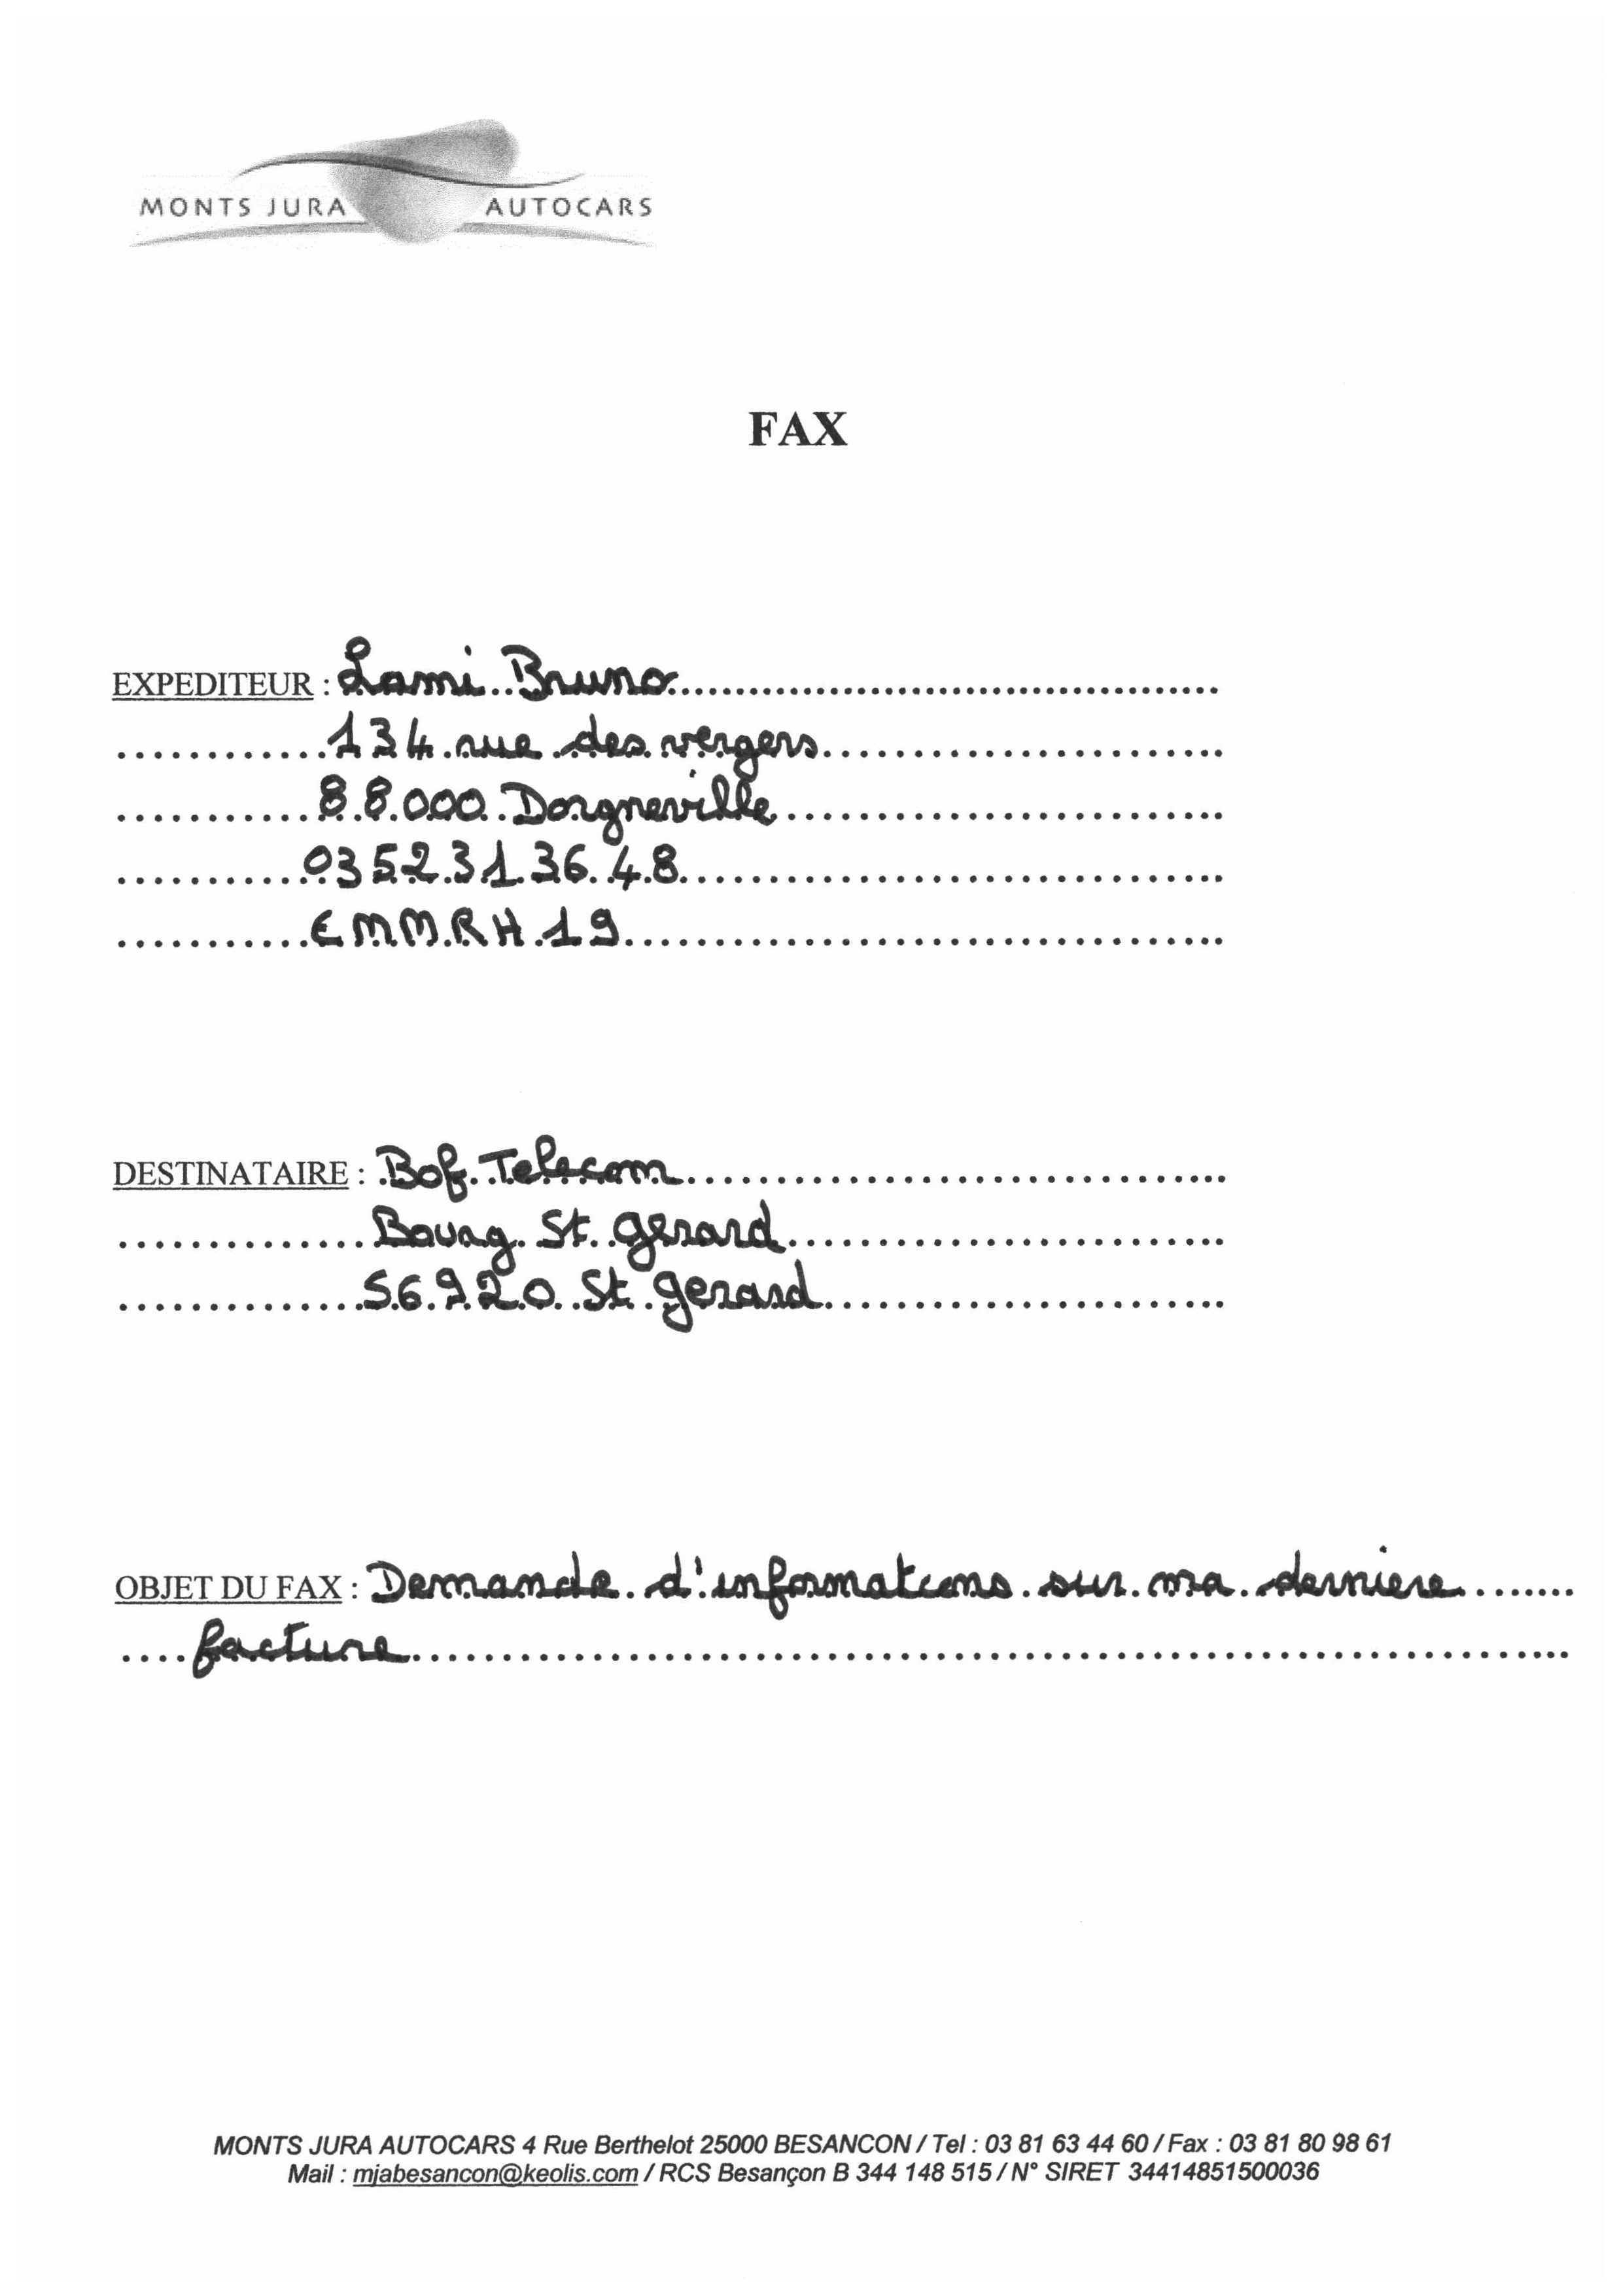 MONTS JURA AUTOCARS
FAX
EXPEDITEUR : Lami Bruno
134 rue des vergers
88000 Dorgneville
0352313648
EMMRH19
DESTINATAIRE : Bof Telecom
Bourg St Gerard
56920 St gerard
OBJET DU FAX : Demande d'informations sur ma derniere
facture
MONTS JURA AUTOCARS 4 Rue Berthelot 25000 BESANCON / Tel : 03 81 63 44 60 / Fax : 03 81 80 98 61
Mail : mjabesancon@keolis.com / RCS Besançon B 344 148 515 / N° SIRET 34414851500036